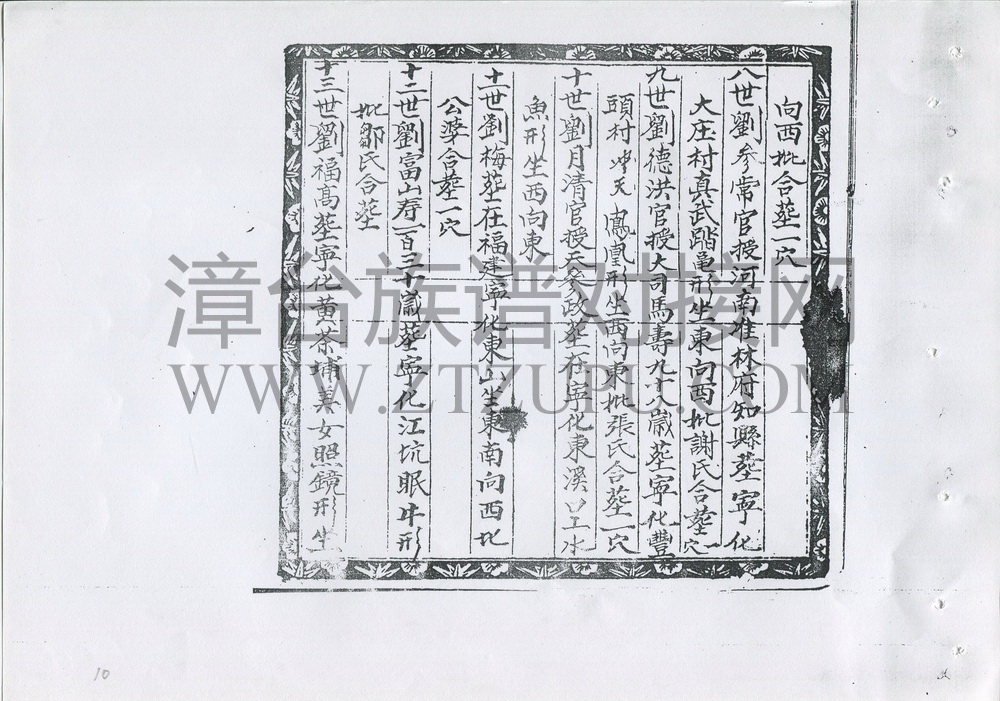 向西批合塟一穴
八世劉参常官授河南淮林府知縣塟寧化
大庄村真武踏亀形坐東向西批謝氏合塟一穴
九世劉德洪官授大司馬壽九十八歲塟寧化豐
頭村冲天鳳凰形坐西向東批張氏合塟一穴
十世劉月清官授天参政塟在寧化東溪口上水
魚形坐西向東
十一世劉梅塟在福建寧化東山坐東南向西北
公婆合塟一穴
十二世劉富山寿一百三十歲塟寧化江坑眠牛形
批鄒氏合塟
十三世劉福高塟寧化黄茶埔美女照鏡形坐
漳台族谱对接网
WWW.ZTZUPU.COM
10